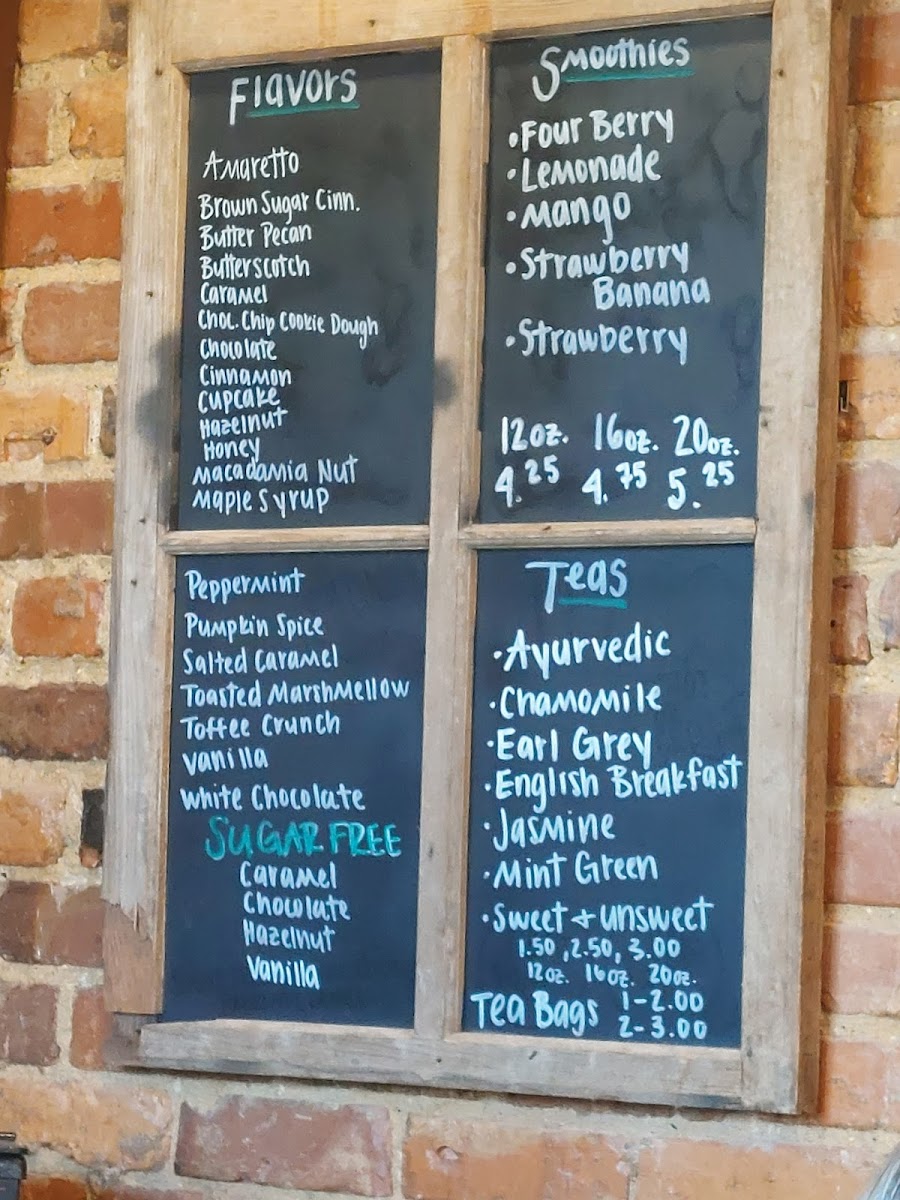 Flavors
Amaretto
Brown Sugar Cinn.
Butter Pecan
Butterscotch
Caramel
Choc. Chip Cookie Dough
Chocolate
Cinnamon
Cupcake
Hazelnut
Honey
Macadamia Nut
Maple Syrup
Peppermint
Pumpkin Spice
Salted Caramel
Toasted Marshmellow
Toffee Crunch
Vanilla
White Chocolate
SUGAR FREE
Caramel
Chocolate
Hazelnut
Vanilla
Smoothies
•Four Berry
•Lemonade
•Mango
•Strawberry
Banana
•Strawberry
12oz. 16oz. 20oz.
4.25 4.75 5.25
Teas
•Ayurvedic
•Chamomile
•Earl Grey
•English Breakfast
•Jasmine
•Mint Green
•Sweet + unsweet
1.50, 2.50, 3.00
12oz. 16oz. 20oz.
Tea Bags 1-2.00
2-3.00